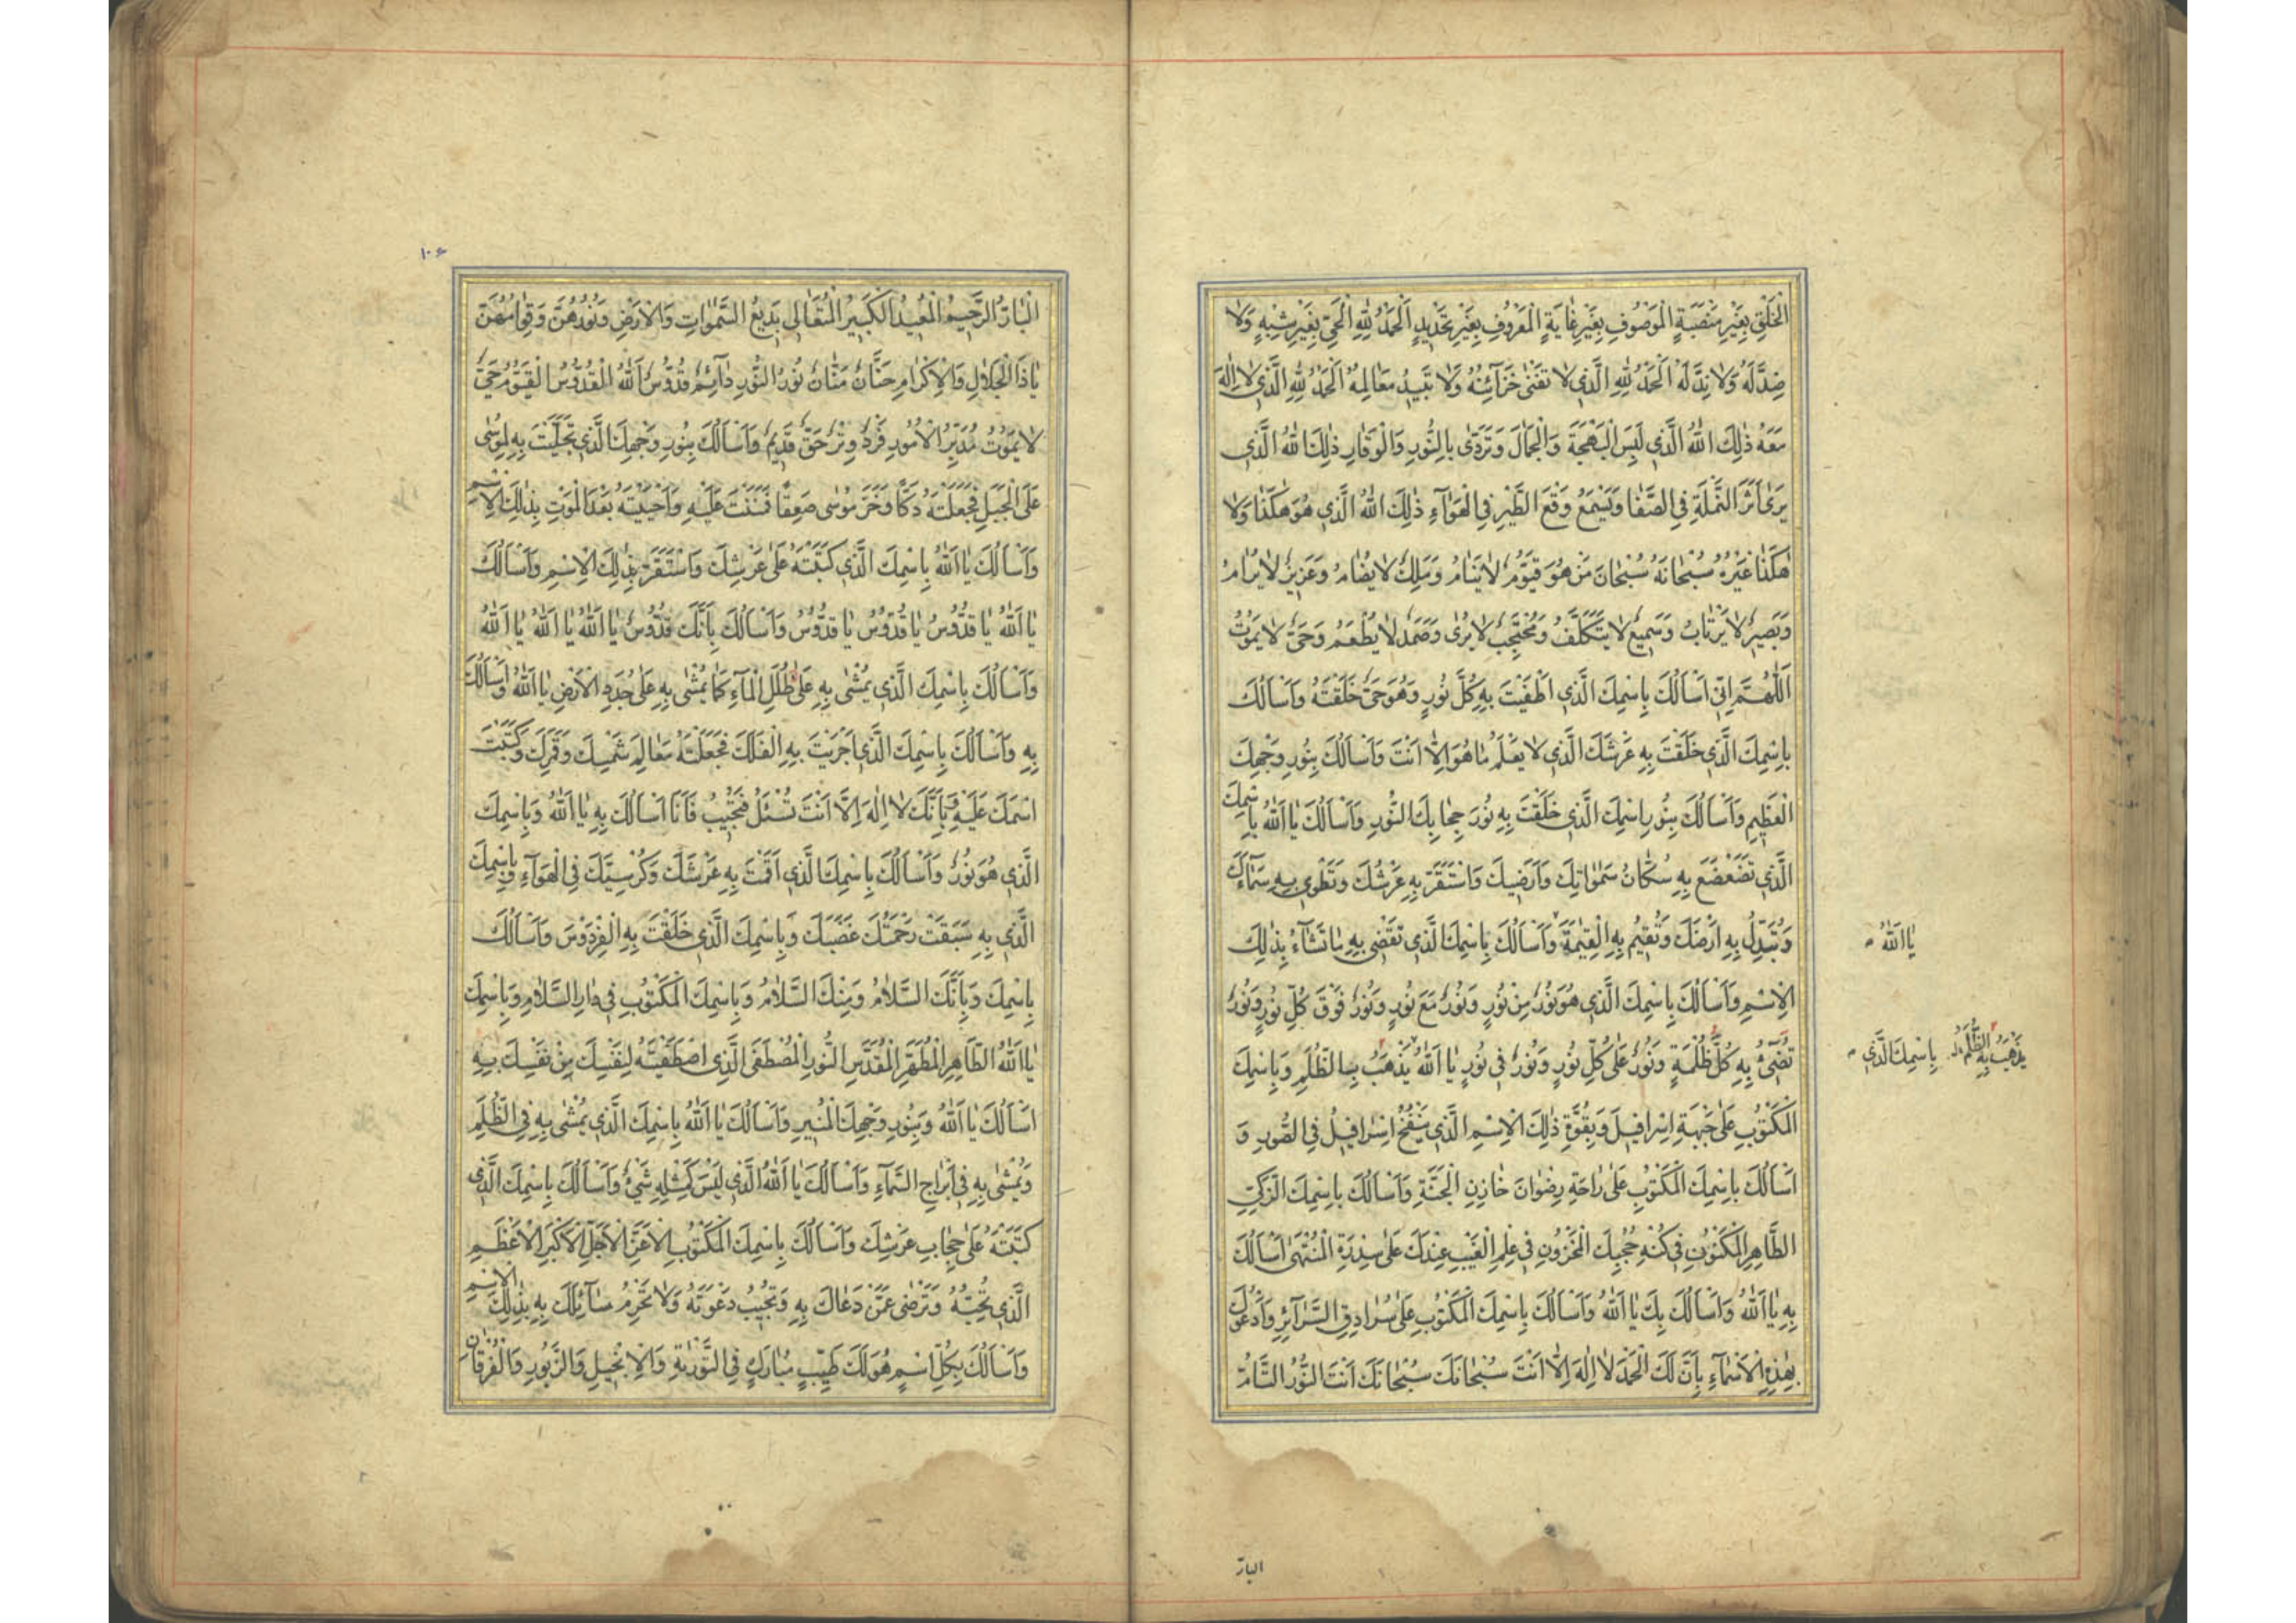 الْخَلْقِ بِغَيْرِ مَنْصَبَةٍ الْمَوْصُوفِ بِغَيْرِ غَايَةٍ الْمَعْرُوفِ بِغَيْرِ تَحْدِيدٍ اَلْحَمْدُ لِلّٰهِ الْحَيِّ بِغَيْرِ شِبْهٍ وَلَا
ضِدَّ لَهُ وَلَا نِدَّ لَهُ اَلْحَمْدُ لِلّٰهِ الَّذِي لَا تَفْنَىٰ خَزَآئِنُهُ وَلَا تَبِيدُ مَعَالِمُهُ اَلْحَمْدُ لِلّٰهِ الَّذِي لَا اِلٰهَ
مَعَهُ ذٰلِكَ اللّٰهُ الَّذِي لَبِسَ الْبَهْجَةَ وَالْجَمَالَ وَتَرَدّٰى بِالنُّورِ وَالْوَقَارِ ذٰلِكَ اللّٰهُ الَّذِي
يَرىٰ اَثَرَ النَّمْلَةِ فِي الصَّفَا وَيَسْمَعُ وَقْعَ الطَّيْرِ فِي الْهَوَآءِ ذٰلِكَ اللّٰهُ الَّذِي هُوَ هٰكَذَا وَلَا
هٰكَذَا غَيْرُهُ سُبْحَانَهُ سُبْحَانَ مَنْ هُوَ قَيُّومٌ لَا يَنَامُ وَمَلِكٌ لَا يُضَامُ وَعَزِيزٌ لَا يُرَامُ
وَبَصِيرٌ لَا يَرْتَابُ وَسَمِيعٌ لَا يَتَكَلَّفُ وَمُحْتَجِبٌ لَا يُرىٰ وَصَمَدٌ لَا يُطْعَمُ وَحَيٌّ لَا يَمُوتُ
اَللّٰهُمَّ اِنِّي اَسْاَلُكَ بِاسْمِكَ الَّذِي اَطْفَيْتَ بِهِ كُلَّ نُورٍ وَهُوَ حَيٌّ خَلَقْتَهُ وَاَسْاَلُكَ
بِاسْمِكَ الَّذِي خَلَقْتَ بِهِ عَرْشَكَ الَّذِي لَا يَعْلَمُ مَا هُوَ اِلَّا اَنْتَ وَاَسْاَلُكَ بِنُورِ وَجْهِكَ
الْعَظِيمِ وَاَسْاَلُكَ بِنُورِ اسْمِكَ الَّذِي خَلَقْتَ بِهِ نُورَ حِجَابِكَ النُّورِ وَاَسْاَلُكَ يَا اَللّٰهُ بِاسْمِكَ
الَّذِي تَضَعْضَعَ بِهِ سُكَّانُ سَمٰوَاتِكَ وَاَرَضِيكَ وَاسْتَقَرَّ بِهِ عَرْشُكَ وَتَطْوِي بِهِ سَمَآءَكَ
وَتُبَدِّلُ بِهِ اَرْضَكَ وَتُقِيمُ بِهِ الْقِيٰمَةَ وَاَسْاَلُكَ بِاسْمِكَ الَّذِي تَقْضِي بِهِ مَا تَشَآءُ بِذٰلِكَ
يَا اَللّٰهُ
الْاِسْمِ وَاَسْاَلُكَ بِاسْمِكَ الَّذِي هُوَ نُورٌ مِنْ نُورٍ وَنُورٌ مَعَ نُورٍ وَنُورٌ فَوْقَ كُلِّ نُورٍ وَنُورٌ
تُضِيءُ بِهِ كُلُّ ظُلْمَةٍ وَنُورٌ عَلٰى كُلِّ نُورٍ وَنُورٌ فِي نُورٍ يَا اَللّٰهُ يَذْهَبُ بِهِ الظُّلَمِ وَبِاسْمِكَ
يَذْهَبُ بِهِ الظُّلَمُ بِاسْمِكَ الَّذِي
الْمَكْتُوبِ عَلٰى جَبْهَةِ اِسْرَافِيلَ وَبِقُوَّةِ ذٰلِكَ الْاِسْمِ الَّذِي يَنْفُخُ اِسْرَافِيلُ فِي الصُّورِ وَ
اَسْاَلُكَ بِاسْمِكَ الْمَكْتُوبِ عَلٰى رَاحَةِ رِضْوَانَ خَازِنِ الْجَنَّةِ وَاَسْاَلُكَ بِاسْمِكَ الزَّكِيِّ
الطَّاهِرِ الْمَكْنُونِ فِي كُنْهِ حُجُبِكَ الْمَخْزُونِ فِي عِلْمِ الْغَيْبِ عِنْدَكَ عَلٰى سِدْرَةِ الْمُنْتَهىٰ اَسْاَلُكَ
بِهِ يَا اَللّٰهُ وَاَسْاَلُكَ بِكَ يَا اَللّٰهُ وَاَسْاَلُكَ بِاسْمِكَ الْمَكْتُوبِ عَلٰى سُرَادِقِ السَّرَآئِرِ وَاَدْعُوكَ
بِهٰذِهِ الْاَسْمَآءِ بِاَنَّ لَكَ الْحَمْدَ لَا اِلٰهَ اِلَّا اَنْتَ سُبْحَانَكَ سُبْحَانَكَ اَنْتَ النُّورُ التَّامُّ
البارّ
١٠۶
الْبَارُّ الرَّحِيمُ الْمُعِيدُ الْكَبِيرُ الْمُتَعَالِي بَدِيعُ السَّمٰوَاتِ وَالْاَرْضِ وَنُورُهُنَّ وَقِوَامُهُنَّ
يَا ذَا الْجَلَالِ وَالْاِكْرَامِ حَنَّانٌ مَنَّانٌ نُورُ النُّورِ دَآئِمٌ قُدُّوسٌ اَللّٰهُ الْقُدُّوسُ الْقَيُّومُ حَيٌّ
لَا يَمُوتُ مُدَبِّرُ الْاُمُورِ فَرْدٌ وِتْرٌ حَقٌّ قَدِيمٌ وَاَسْاَلُكَ بِنُورِ وَجْهِكَ الَّذِي تَجَلَّيْتَ بِهِ لِمُوسٰى
عَلَى الْجَبَلِ فَجَعَلْتَهُ دَكًّا وَخَرَّ مُوسٰى صَعِقًا فَمَنَنْتَ عَلَيْهِ وَاَحْيَيْتَهُ بَعْدَ الْمَوْتِ بِذٰلِكَ الْاِسْمِ
وَاَسْاَلُكَ يَا اَللّٰهُ بِاسْمِكَ الَّذِي كَتَبْتَهُ عَلٰى عَرْشِكَ وَاسْتَقَرَّ بِذٰلِكَ الْاِسْمِ وَاَسْاَلُكَ
يَا اَللّٰهُ يَا قُدُّوسُ يَا قُدُّوسُ يَا قُدُّوسُ وَاَسْاَلُكَ بِاَنَّكَ قُدُّوسٌ يَا اَللّٰهُ يَا اَللّٰهُ يَا اَللّٰهُ
وَاَسْاَلُكَ بِاسْمِكَ الَّذِي يُمْشٰى بِهِ عَلٰى ظُلَلِ الْمَآءِ كَمَا يُمْشٰى بِهِ عَلٰى جُدَدِ الْاَرْضِ يَا اَللّٰهُ وَاَسْاَلُكَ
بِهِ وَاَسْاَلُكَ بِاسْمِكَ الَّذِي اَجْرَيْتَ بِهِ الْفَلَكَ فَجَعَلْتَهُ مَعَالِمَ شَمْسِكَ وَقَمَرِكَ وَكَتَبْتَ
اسْمَكَ عَلَيْهِ وَبِاَنَّكَ لَا اِلٰهَ اِلَّا اَنْتَ تُسْئَلُ فَتُجِيبُ فَاَنَا اَسْاَلُكَ بِهِ يَا اَللّٰهُ وَبِاسْمِكَ
الَّذِي هُوَ نُورٌ وَاَسْاَلُكَ بِاسْمِكَ الَّذِي اَقَمْتَ بِهِ عَرْشَكَ وَكُرْسِيَّكَ فِي الْهَوَآءِ وَبِاسْمِكَ
الَّذِي بِهِ سَبَقَتْ رَحْمَتُكَ غَضَبَكَ وَبِاسْمِكَ الَّذِي خَلَقْتَ بِهِ الْفِرْدَوْسَ وَاَسْاَلُكَ
بِاسْمِكَ وَبِاَنَّكَ السَّلَامُ وَمِنْكَ السَّلَامُ وَبِاسْمِكَ الْمَكْتُوبِ فِي دَارِ السَّلَامِ وَبِاسْمِكَ
يَا اَللّٰهُ الطَّاهِرِ الْمُطَهَّرِ الْمُقَدَّسِ النُّورِ الْمُصْطَفَى الَّذِي اصْطَفَيْتَهُ لِنَفْسِكَ مِنْ نَفْسِكَ بِهِ
اَسْاَلُكَ يَا اَللّٰهُ وَبِنُورِ وَجْهِكَ الْمُنِيرِ وَاَسْاَلُكَ يَا اَللّٰهُ بِاسْمِكَ الَّذِي يُمْشٰى بِهِ فِي الظُّلَمِ
وَيُمْشٰى بِهِ فِي اَبْرَاجِ السَّمَآءِ وَاَسْاَلُكَ يَا اَللّٰهُ الَّذِي لَيْسَ كَمِثْلِهِ شَيْءٌ وَاَسْاَلُكَ بِاسْمِكَ الَّذِي
كَتَبْتَهُ عَلٰى حِجَابِ عَرْشِكَ وَاَسْاَلُكَ بِاسْمِكَ الْمَكْتُوبِ الْاَعَزِّ الْاَجَلِّ الْاَكْبَرِ الْاَعْظَمِ
الَّذِي تُحِبُّهُ وَتَرْضٰى عَمَّنْ دَعَاكَ بِهِ وَتُجِيبُ دَعْوَتَهُ وَلَا تَحْرِمُ سَآئِلَكَ بِهِ بِذٰلِكَ الْاِسْمِ
وَاَسْاَلُكَ بِكُلِّ اسْمٍ هُوَ لَكَ طَيِّبٍ مُبَارَكٍ فِي التَّوْرٰيةِ وَالْاِنْجِيلِ وَالزَّبُورِ وَالْفُرْقَانِ